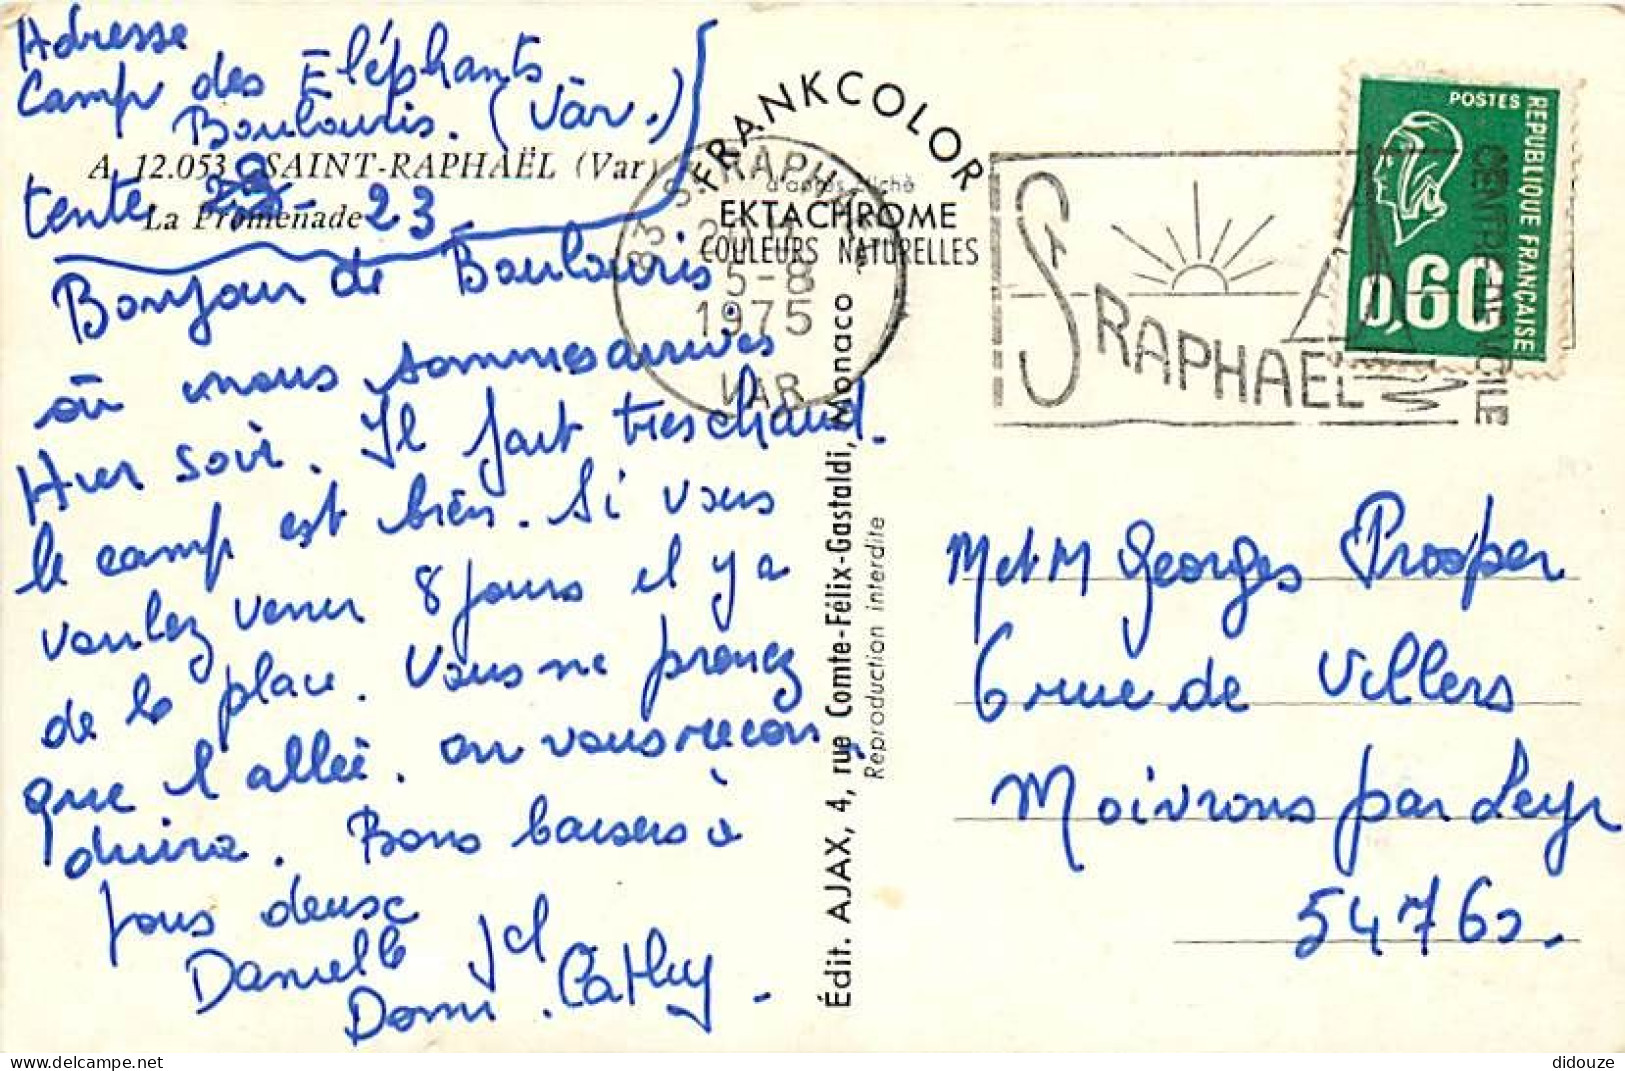 Adresse
Camp des Éléphants
Boulouris. (Var.)
A. 12.053 SAINT-RAPHAËL (Var)
La Promenade
tente 23
Bonjour de Boulouris
où nous sommes arrivés
Hier soir. Il fait très chaud.
le camp est bien. Si vous
voulez venir 8 jours il y a
de la place. Vous ne prenez
que l'allée. on vous recon
duira. Bons baisers à
tous deux
Danielle Jcl
Domi. Cathy.
FRANKCOLOR
d'après cliché
EKTACHROME
COULEURS NATURELLES
Édit. AJAX, 4, rue Comte-Félix-Gastaldi, Monaco
Reproduction interdite
83 ST RAPHAEL
5-8
1975
VAR
ST RAPHAEL
CENTRE DE VOILE
POSTES
REPUBLIQUE FRANCAISE
0,60
M et M Georges Prosper
6 rue de Villers
Moivrons par Leyr
54760.
didouze